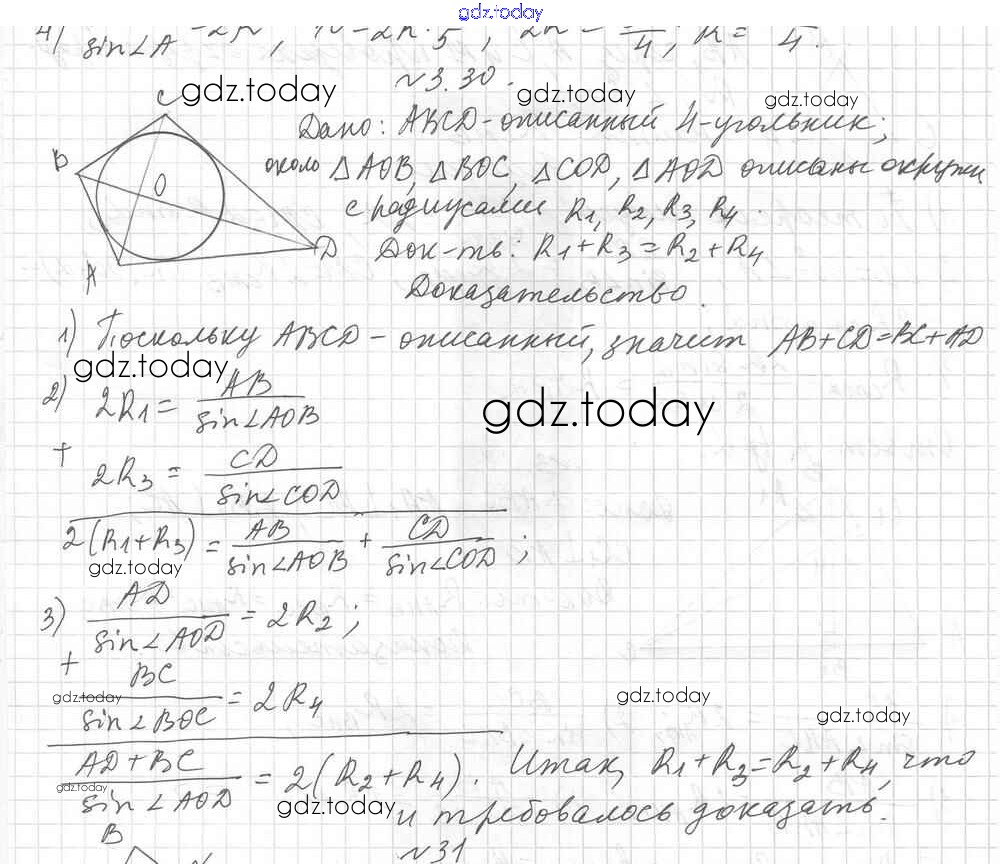 gdz.today
4) sin∠A
№3.30.
gdz.today gdz.today gdz.today
Дано: ABCD-описанный 4-угольник;
около △AOB, △BOC, △COD, △AOD описаны окружн
с радиусами R1, R2, R3, R4.
Док-ть: R1+R3=R2+R4
Доказательство.
C
B
O
A
D
1) Поскольку ABCD-описанный, значит AB+CD=BC+AD
gdz.today
2) 2R1 = AB / sin∠AOB
gdz.today
+ 2R3 = CD / sin∠COD
2(R1+R3) = AB / sin∠AOB + CD / sin∠COD ;
gdz.today
3) AD / sin∠AOD = 2R2;
+ BC / sin∠BOC = 2R4
gdz.today gdz.today gdz.today
AD+BC / sin∠AOD = 2(R2+R4). Итак, R1+R3=R2+R4, что
gdz.today gdz.today
и требовалось доказать.
B
№31